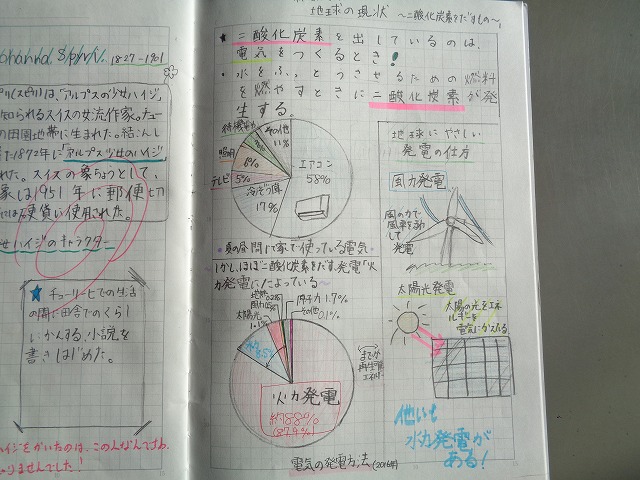 1827-1901
「アルプスの少女ハイジ」
知られるスイスの女流作家。チュー
の田園地帯に生まれた。結こんし
た1872年に「アルプス少女のハイジ」
れた。スイスの象ちょうとして、
象は1951年に郵便切
には硬貨に使用された。
女ハイジのキャラクター
★チューリヒでの生活
の間に田舎でのくらし
にかんする小説を
書きはじめた。
ハイジをかいたのは、この人なんですね。
りませんでした!
地球の現状 ~二酸化炭素をだすもの~
★二酸化炭素を出しているのは、
電気をつくるとき!
・水をふっとうさせるための燃料
を燃やすときに二酸化炭素が発
生する。
待機電力
その他
11%
照明
テレビ
5%
冷ぞう庫
17%
エアコン
58%
真の昼間に家で使っている電気
しかし、ほぼ二酸化炭素をだす発電「火
力発電」にたよっている
地熱
風力
太陽光
原子力1.7%
その他
水力
8.5%
火力発電
約88%
(87.9%)
電気の発電方法(2016年)
地球にやさしい
発電の仕方
風力発電
風の力で
風車を動か
して
発電
太陽光発電
太陽の光をエネ
ルギーを
電気にかえる
他にも
水力発電が
ある!